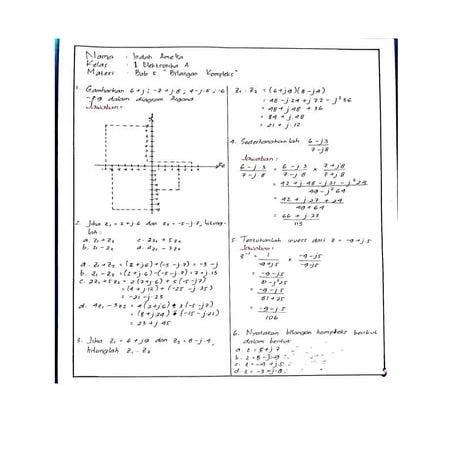 Nama : Indah Amelia
Kelas : 1 Elektronika A
Materi : Bab 5 "Bilangan Kompleks"
1. Gambarkan 6+j ; -3+j·8 ; 4-j·5 ; -6
-j·9 dalam diagram Argand
Jawaban :
2. Jika z₁ = 2+j·6 dan z₂ = -5-j·7, hitung-
lah :
a. z₁+z₂ c. 2z₁+5z₂
b. z₁-z₂ d. 4z₁-3z₂
a. z₁+z₂ = (2+j·6)+(-5-j·7) = -3-j
b. z₁-z₂ = (2+j·6)-(-5-j·7) = 7+j·13
c. 2z₁+5z₂ = 2(2+j·6)+5(-5-j·7)
= (4+j·12)+(-25-j·35)
= -21-j·23
d. 4z₁-3z₂ = 4(2+j·6)-3(-5-j·7)
= (8+j·24)-(-15-j·21)
= 23+j·45
3. Jika z₁ = 6+j9 dan z₂ = 8-j·4,
hitunglah z₁ · z₂
z₁ · z₂ = (6+j9)(8-j4)
= 48-j·24+j·72-j²36
= 48+j·48+36
= 84+j·48
= 21+j·12
4. Sederhanakanlah 6-j3 / 7-j8
Jawaban :
6-j·3 / 7-j·8 = 6-j·3 / 7-j·8 × 7+j8 / 7+j8
= 42+j·48-j21-j²24 / 49-j²64
= 42+j·27+24 / 49+64
= 66+j·27 / 113
5. Tentukanlah invers dari z = -9+j·5
Jawaban :
z⁻¹ = 1 / -9+j5 × -9-j5 / -9-j5
= -9-j5 / 81-j²25
= -9-j5 / 81+25
= -9-j5 / 106
6. Nyatakan bilangan kompleks berikut
dalam bentuk
a. z = 5+j·7
b. z = 8-j·9
c. z = -4+j5
d. z = -3-j·8